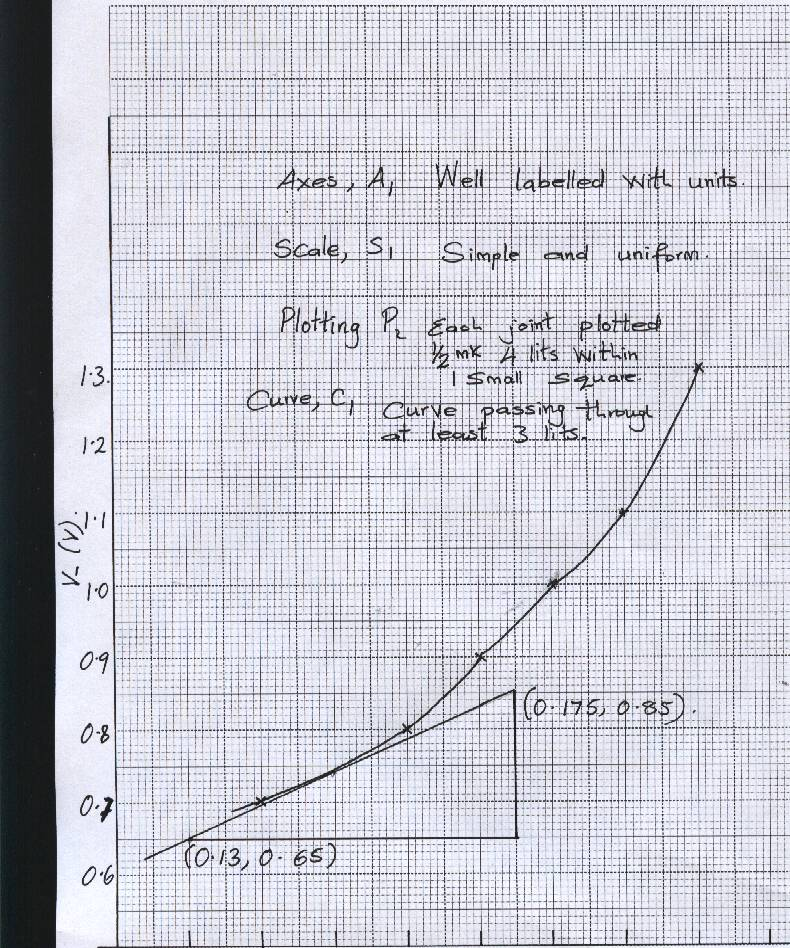 Axes, A₁ Well labelled with units.
Scale, S₁ Simple and uniform.
Plotting P₂ Each joint plotted
½ mk 4 lits within
1 Small square.
Curve, C₁ Curve passing through
at least 3 lits.
1.3
1.2
1.1
V- (V)
1.0
0.9
(0.175, 0.85).
0.8
0.7
(0.13, 0.65)
0.6